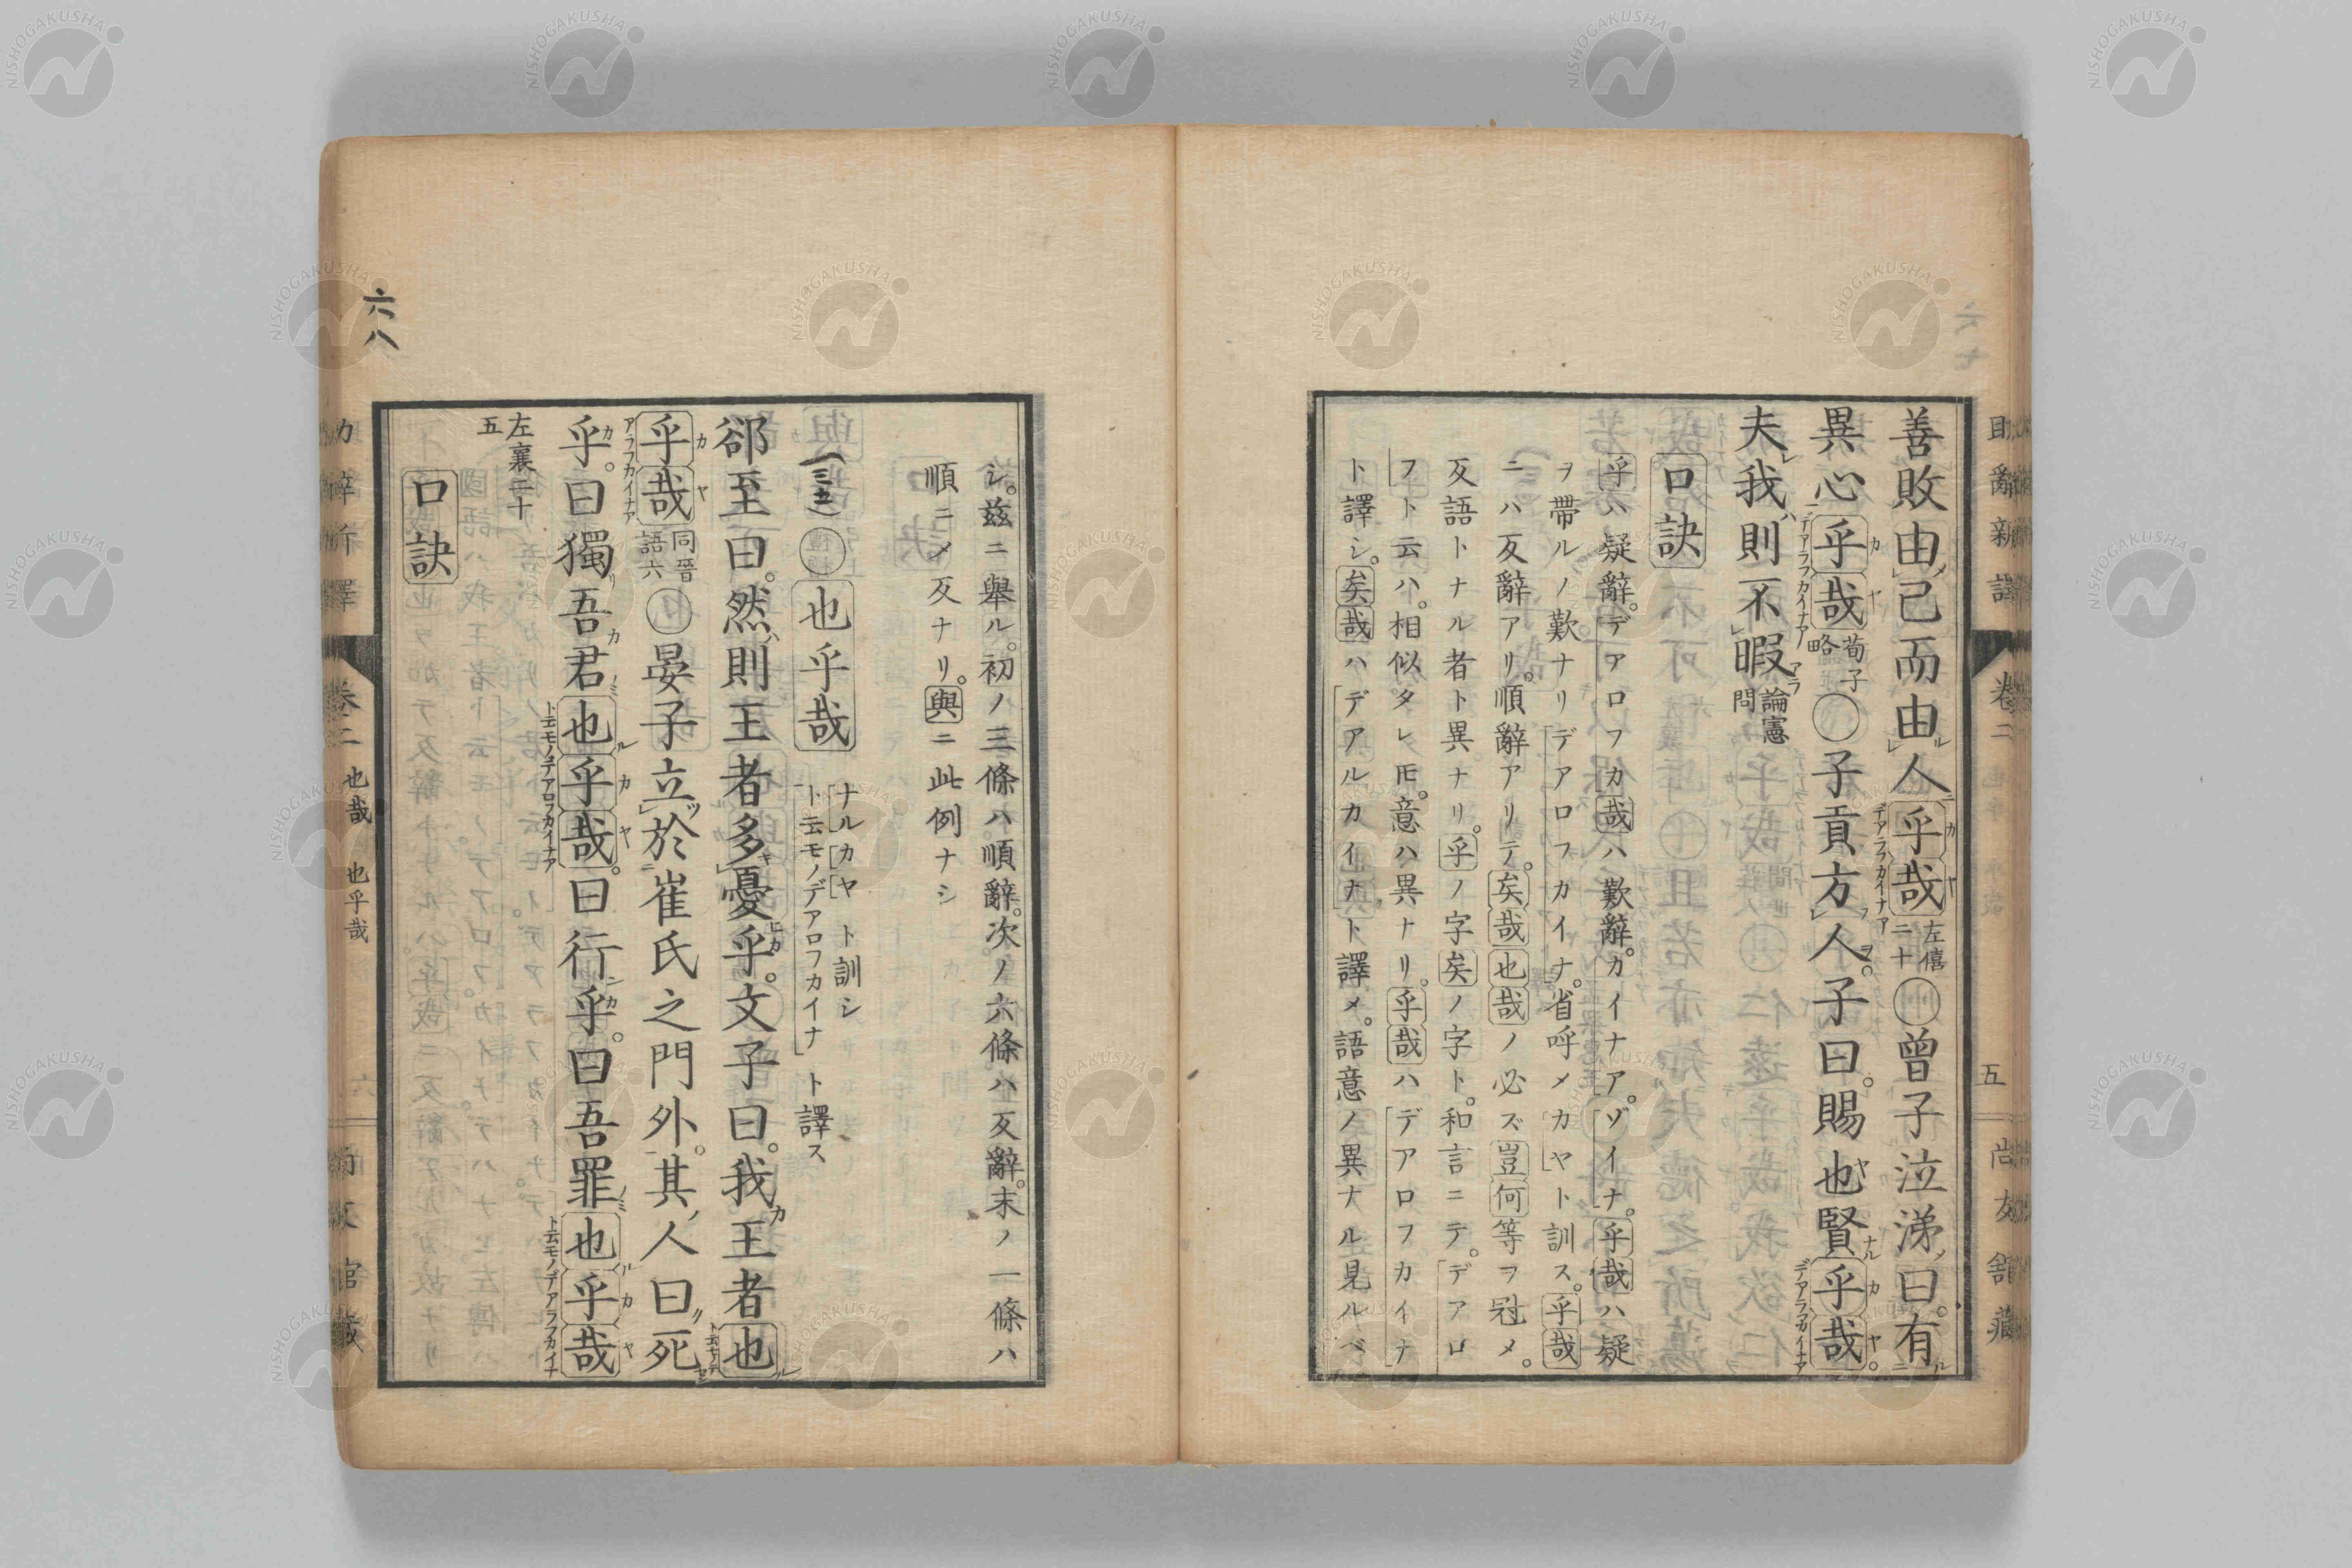 善敗由己而由人乎哉左僖二十〇曾子泣涕曰。有
異心乎哉荀子略〇子貢方人。子曰。賜也賢乎哉。
夫我則不暇論憲問
口訣
乎ハ疑辭。デアロフカ哉ハ歎辭。カイナア。ゾイナ。乎哉ハ疑
ヲ帶ルノ歎ナリデアロフカイナ。省呼メカヤト訓ス。乎哉
ニハ反辭アリ。順辭アリテ。矣哉也哉ノ必ズ豈何等ヲ冠メ。
反語トナル者ト異ナリ。乎ノ字矣ノ字ト。和言ニテ。デアロ
フト云ハ。相似タレ𪜈。意ハ異ナリ。乎哉ハデアロフカイナ
ト譯シ。矣哉ハデアルカイナト譯メ。語意ノ異ナル見ルベ
シ。玆ニ舉ル。初ノ三條ハ順辭。次ノ六條ハ反辭。末ノ一條ハ
順ニメ反ナリ。與ニ此例ナシ
〇也乎哉 ナルカヤト訓シ ト云モノデアロフカイナト譯ス
郤至曰。然則王者多憂乎。文子曰。我王者也
乎哉同晉語六〇晏子立於崔氏之門外。其人曰死
乎。曰獨吾君也乎哉。曰行乎。曰吾罪也乎哉
左襄二十五
口訣
助辭新譯 卷二 五 尚友館藏
卷二 也哉 也乎哉
六八
NISHOGAKUSHA